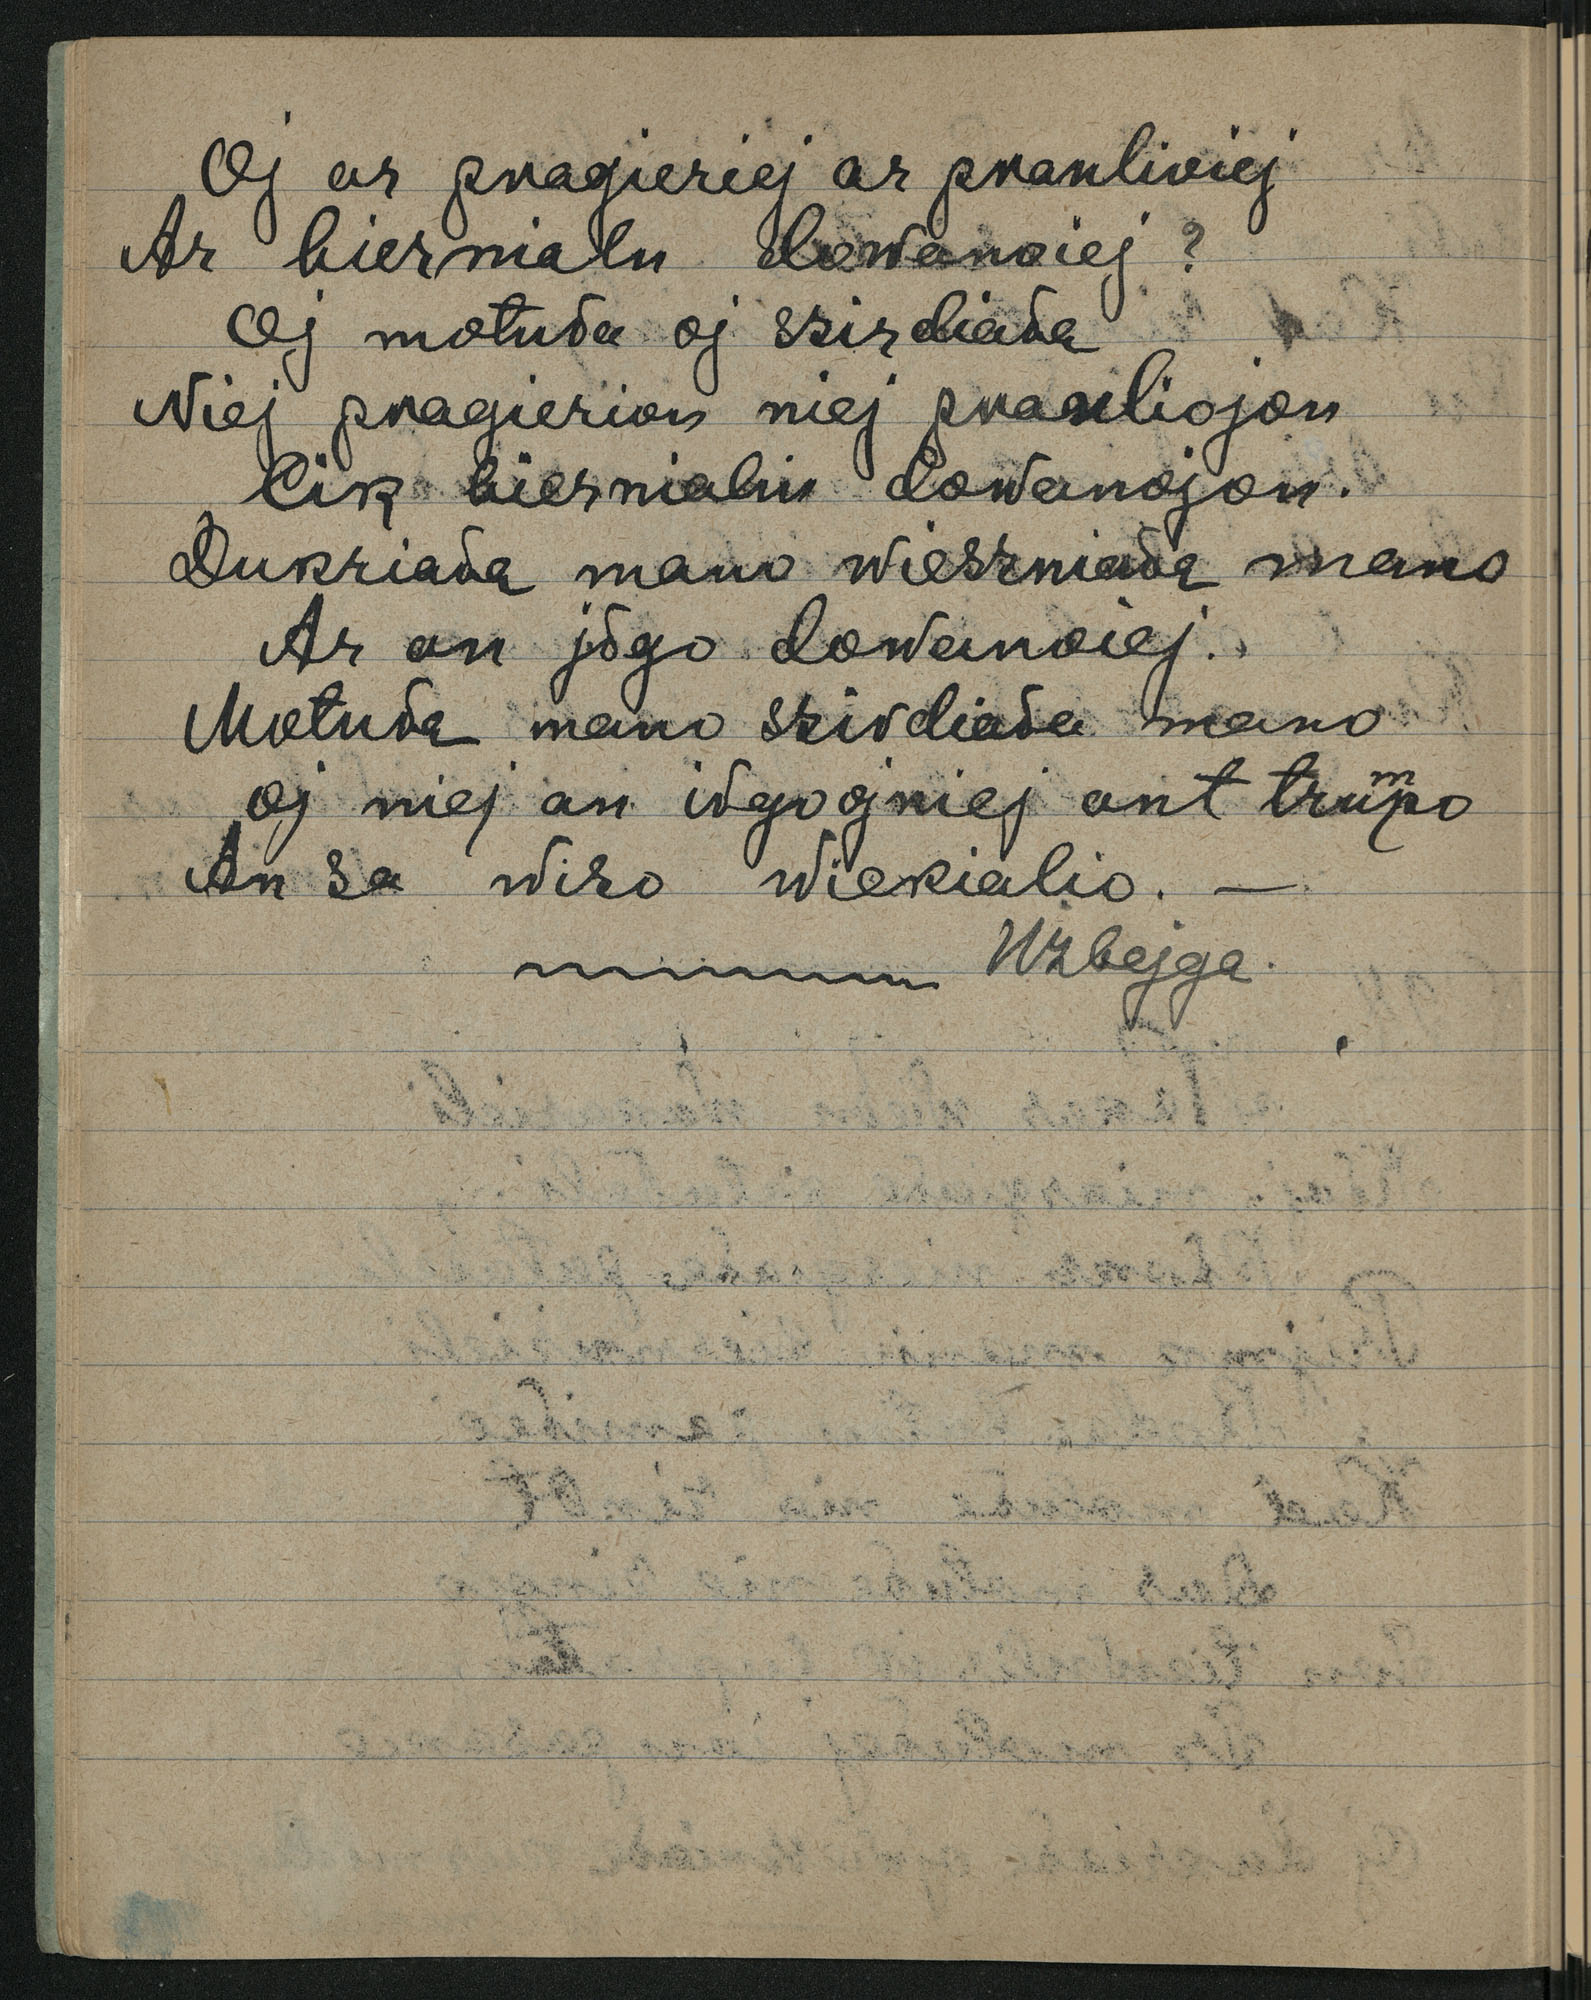 Oj ar pragieriej ar pranliviej
Ar biernialu dowanoiej?
Oj motuda oj szirdiada
Niej pragierion niej pranliojon
Cik biernialu dowanojon.
Dukriada mano wieszniada mano
Ar an jdgo dowanoiej.
Motuda mano szirdiada mano
oj niej an idgo ojniej ant trumpo
An sa wiso wiekialio. —
Uzbejga.